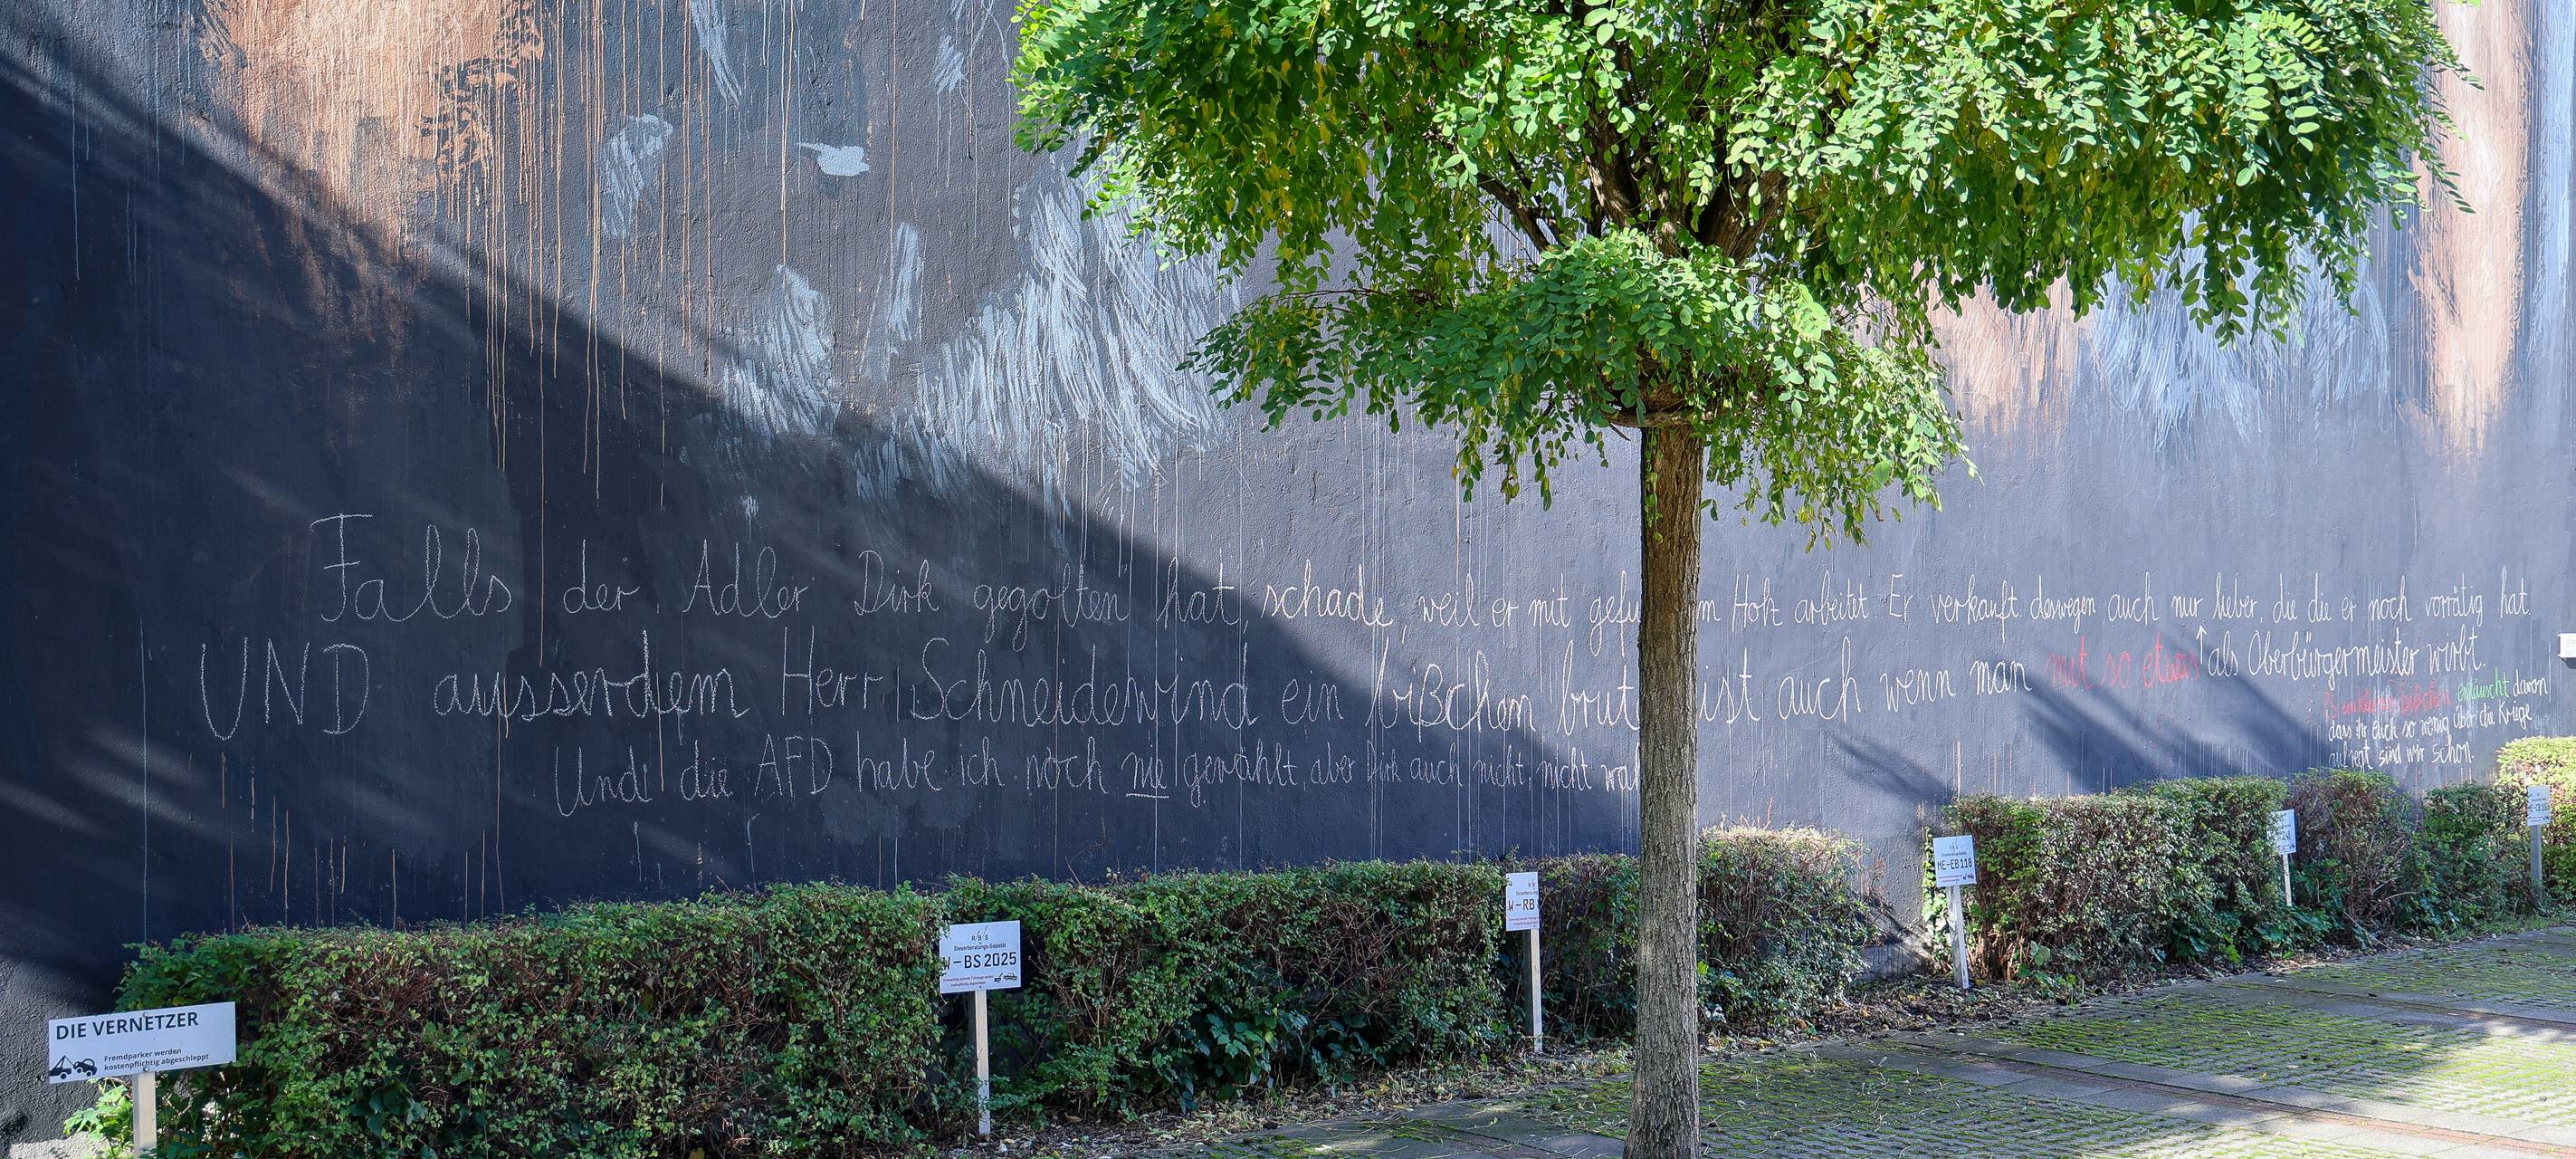 Falls der Adler Dirk gegolten hat, schade, weil er mit gefu m Holz arbeitet. Er verkauft deswegen auch nur lieber, die die er noch vorrätig hat.
UND ausserdem Herr Schneidewind ein bißchen brut ist auch wenn man mit so etwas ↑ als Oberbürgermeister wirbt.
Und die AFD habe ich noch nie gewählt, aber Dirk auch nicht, nicht wa
enttäuscht davon
dass ihr Euch so wenig über die Kriege
aufregt sind wir schon.
DIE VERNETZER
Fremdparker werden
kostenpflichtig abgeschleppt
RBS
Steuerberatungs-Sozietät
W-BS 2025
W-RB
ME-EB 118